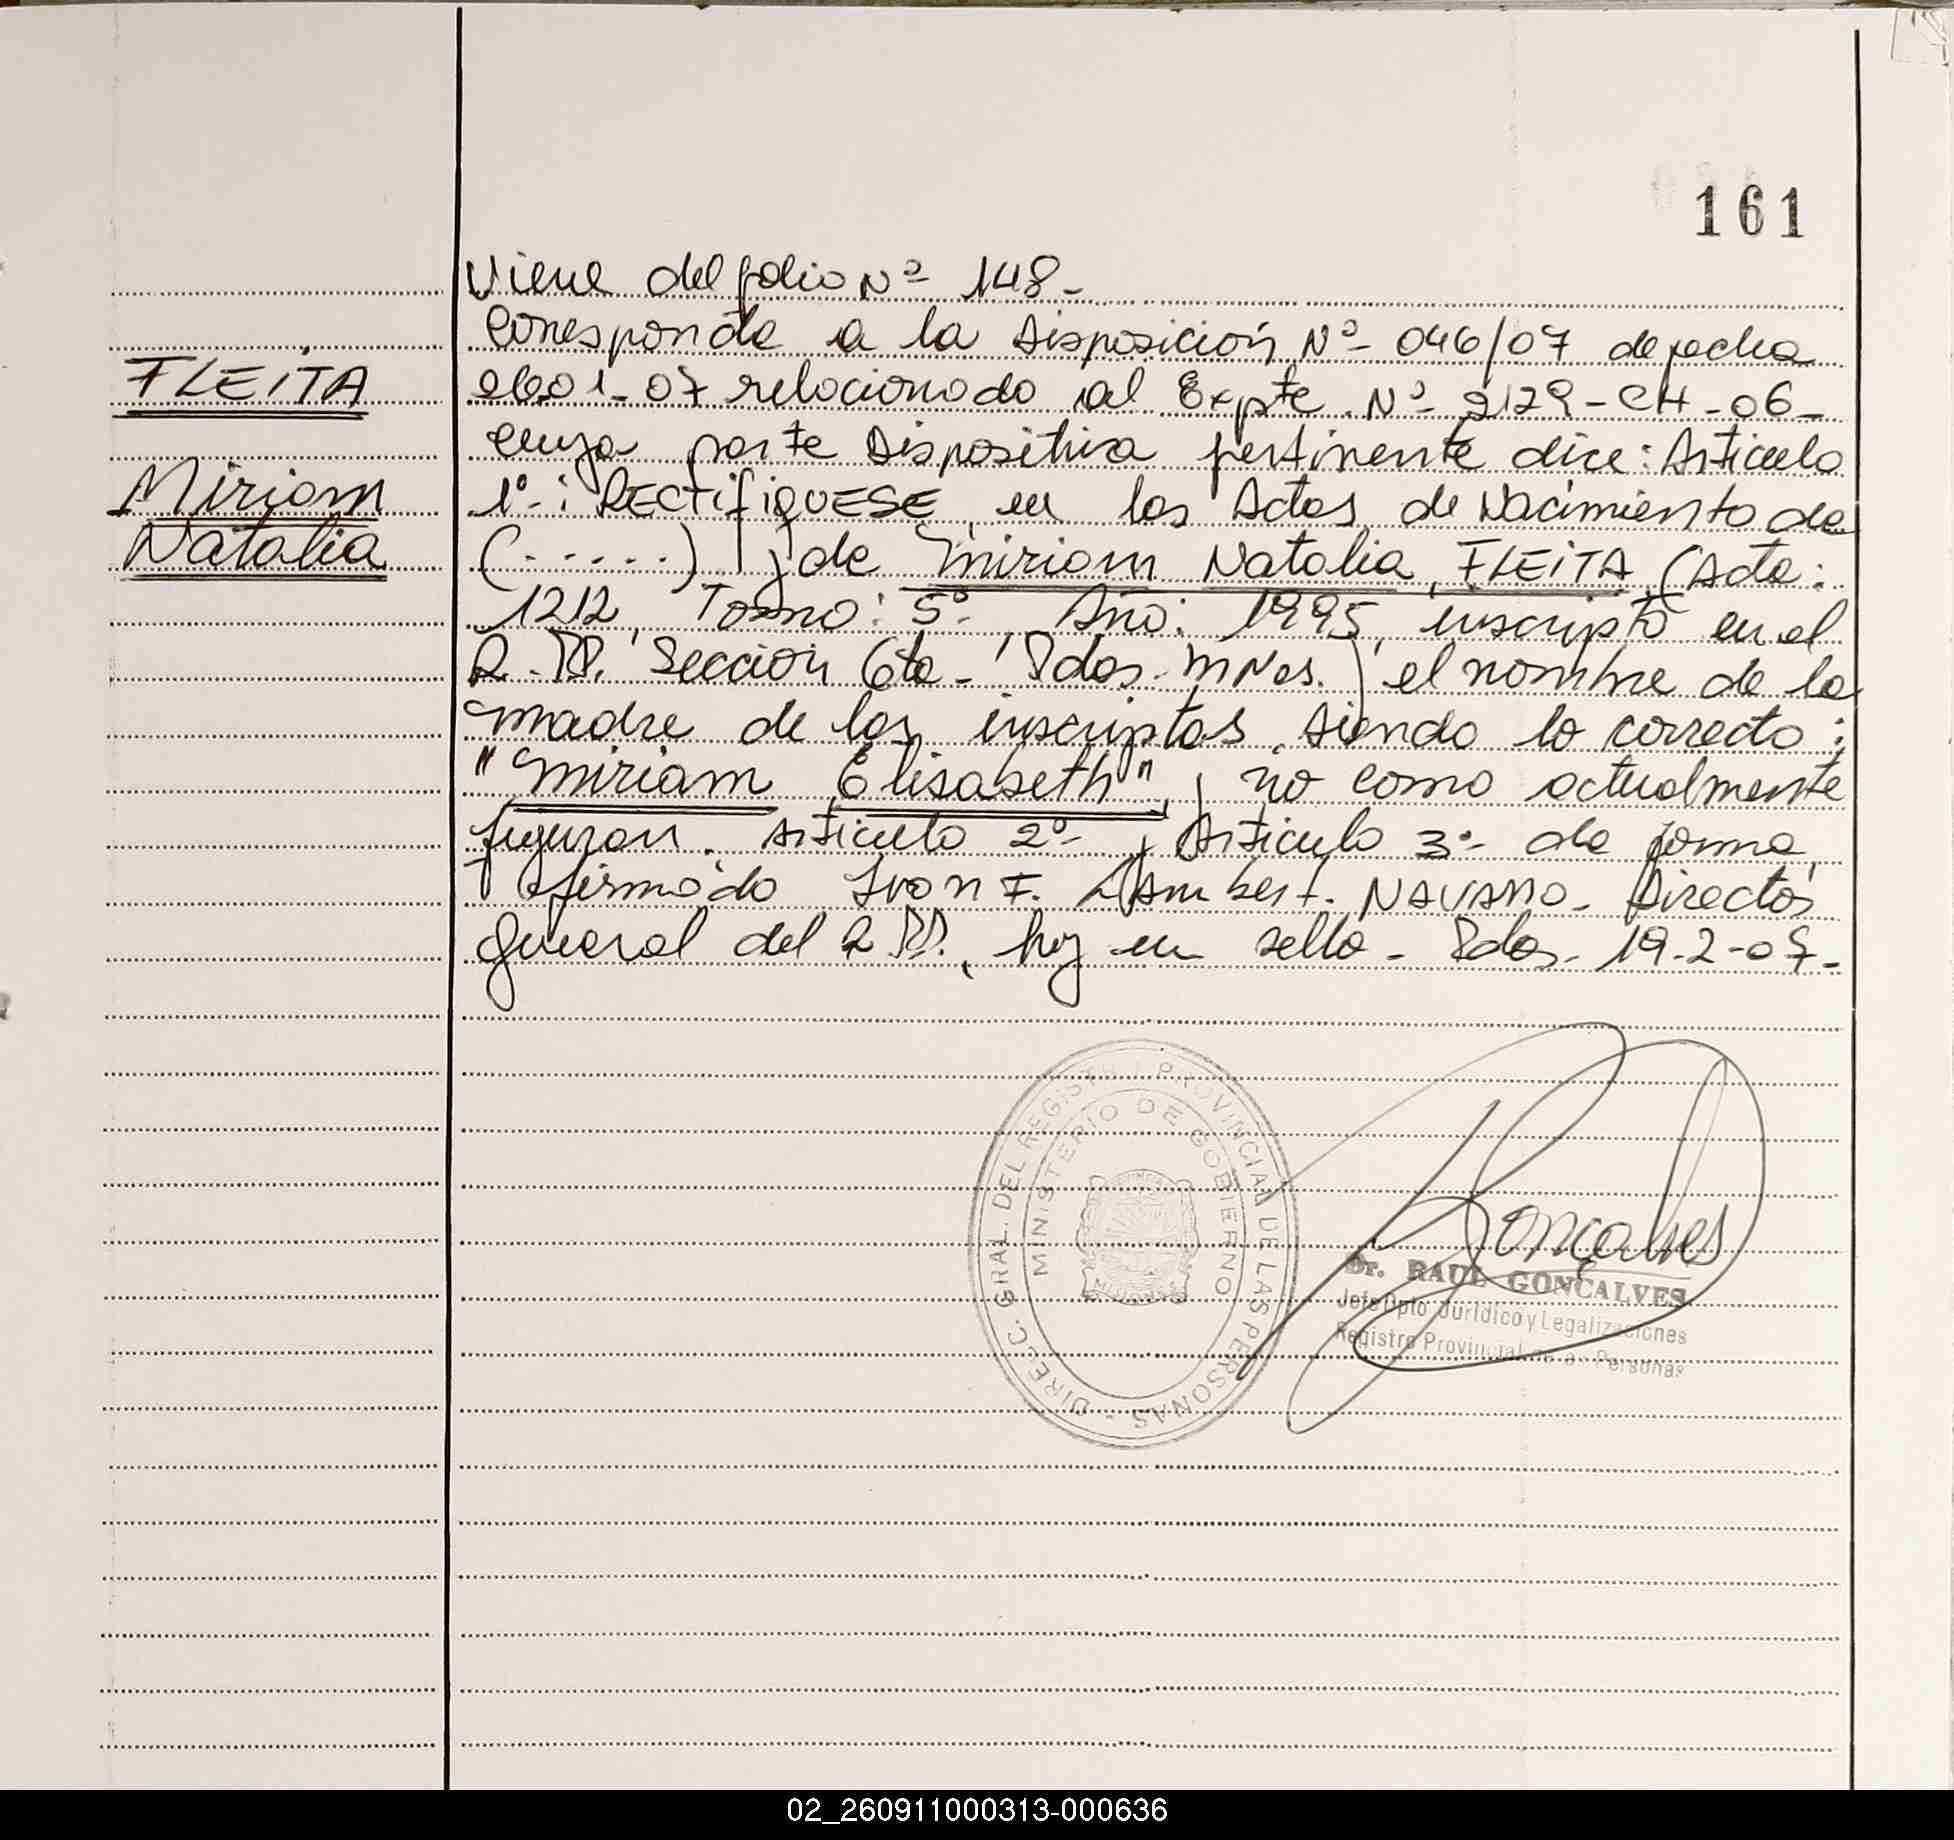 161
Viene del folio Nº 148-
Corresponde a la Disposición Nº 046/07 de fecha
FLEITA
26.01-07 relacionado al Expte. Nº 2129-CH-06-
cuya parte Dispositiva pertinente dice: Articulo
Miriam
1º-: RECTIFIQUESE, en las Actas de Nacimiento de
Natalia
(......) y de Miriam Natalia FLEITA (Acta:
1212, Tomo: 5º- Año: 1995, inscripto en el
R.PP. Sección 6ta- Pdas. MNes.) el nombre de la
madre de las inscriptas, siendo lo correcto:
"Miriam Elisabeth" y no como actualmente
figuran. Articulo 2º- y Articulo 3º- de forma,
firmado Ivon F. Lambert. Navarro. Director
General del R.PP., hay un sello- Pdas. 19-2-07-
DIRECC. GRAL. DEL REGISTRO PROVINCIAL DE LAS PERSONAS -
MINISTERIO DE GOBIERNO
Gonçalves
Dr. RAUL GONÇALVES
Jefe Dpto. Jurídico y Legalizaciones
Registro Provincial de las Personas
02_260911000313-000636